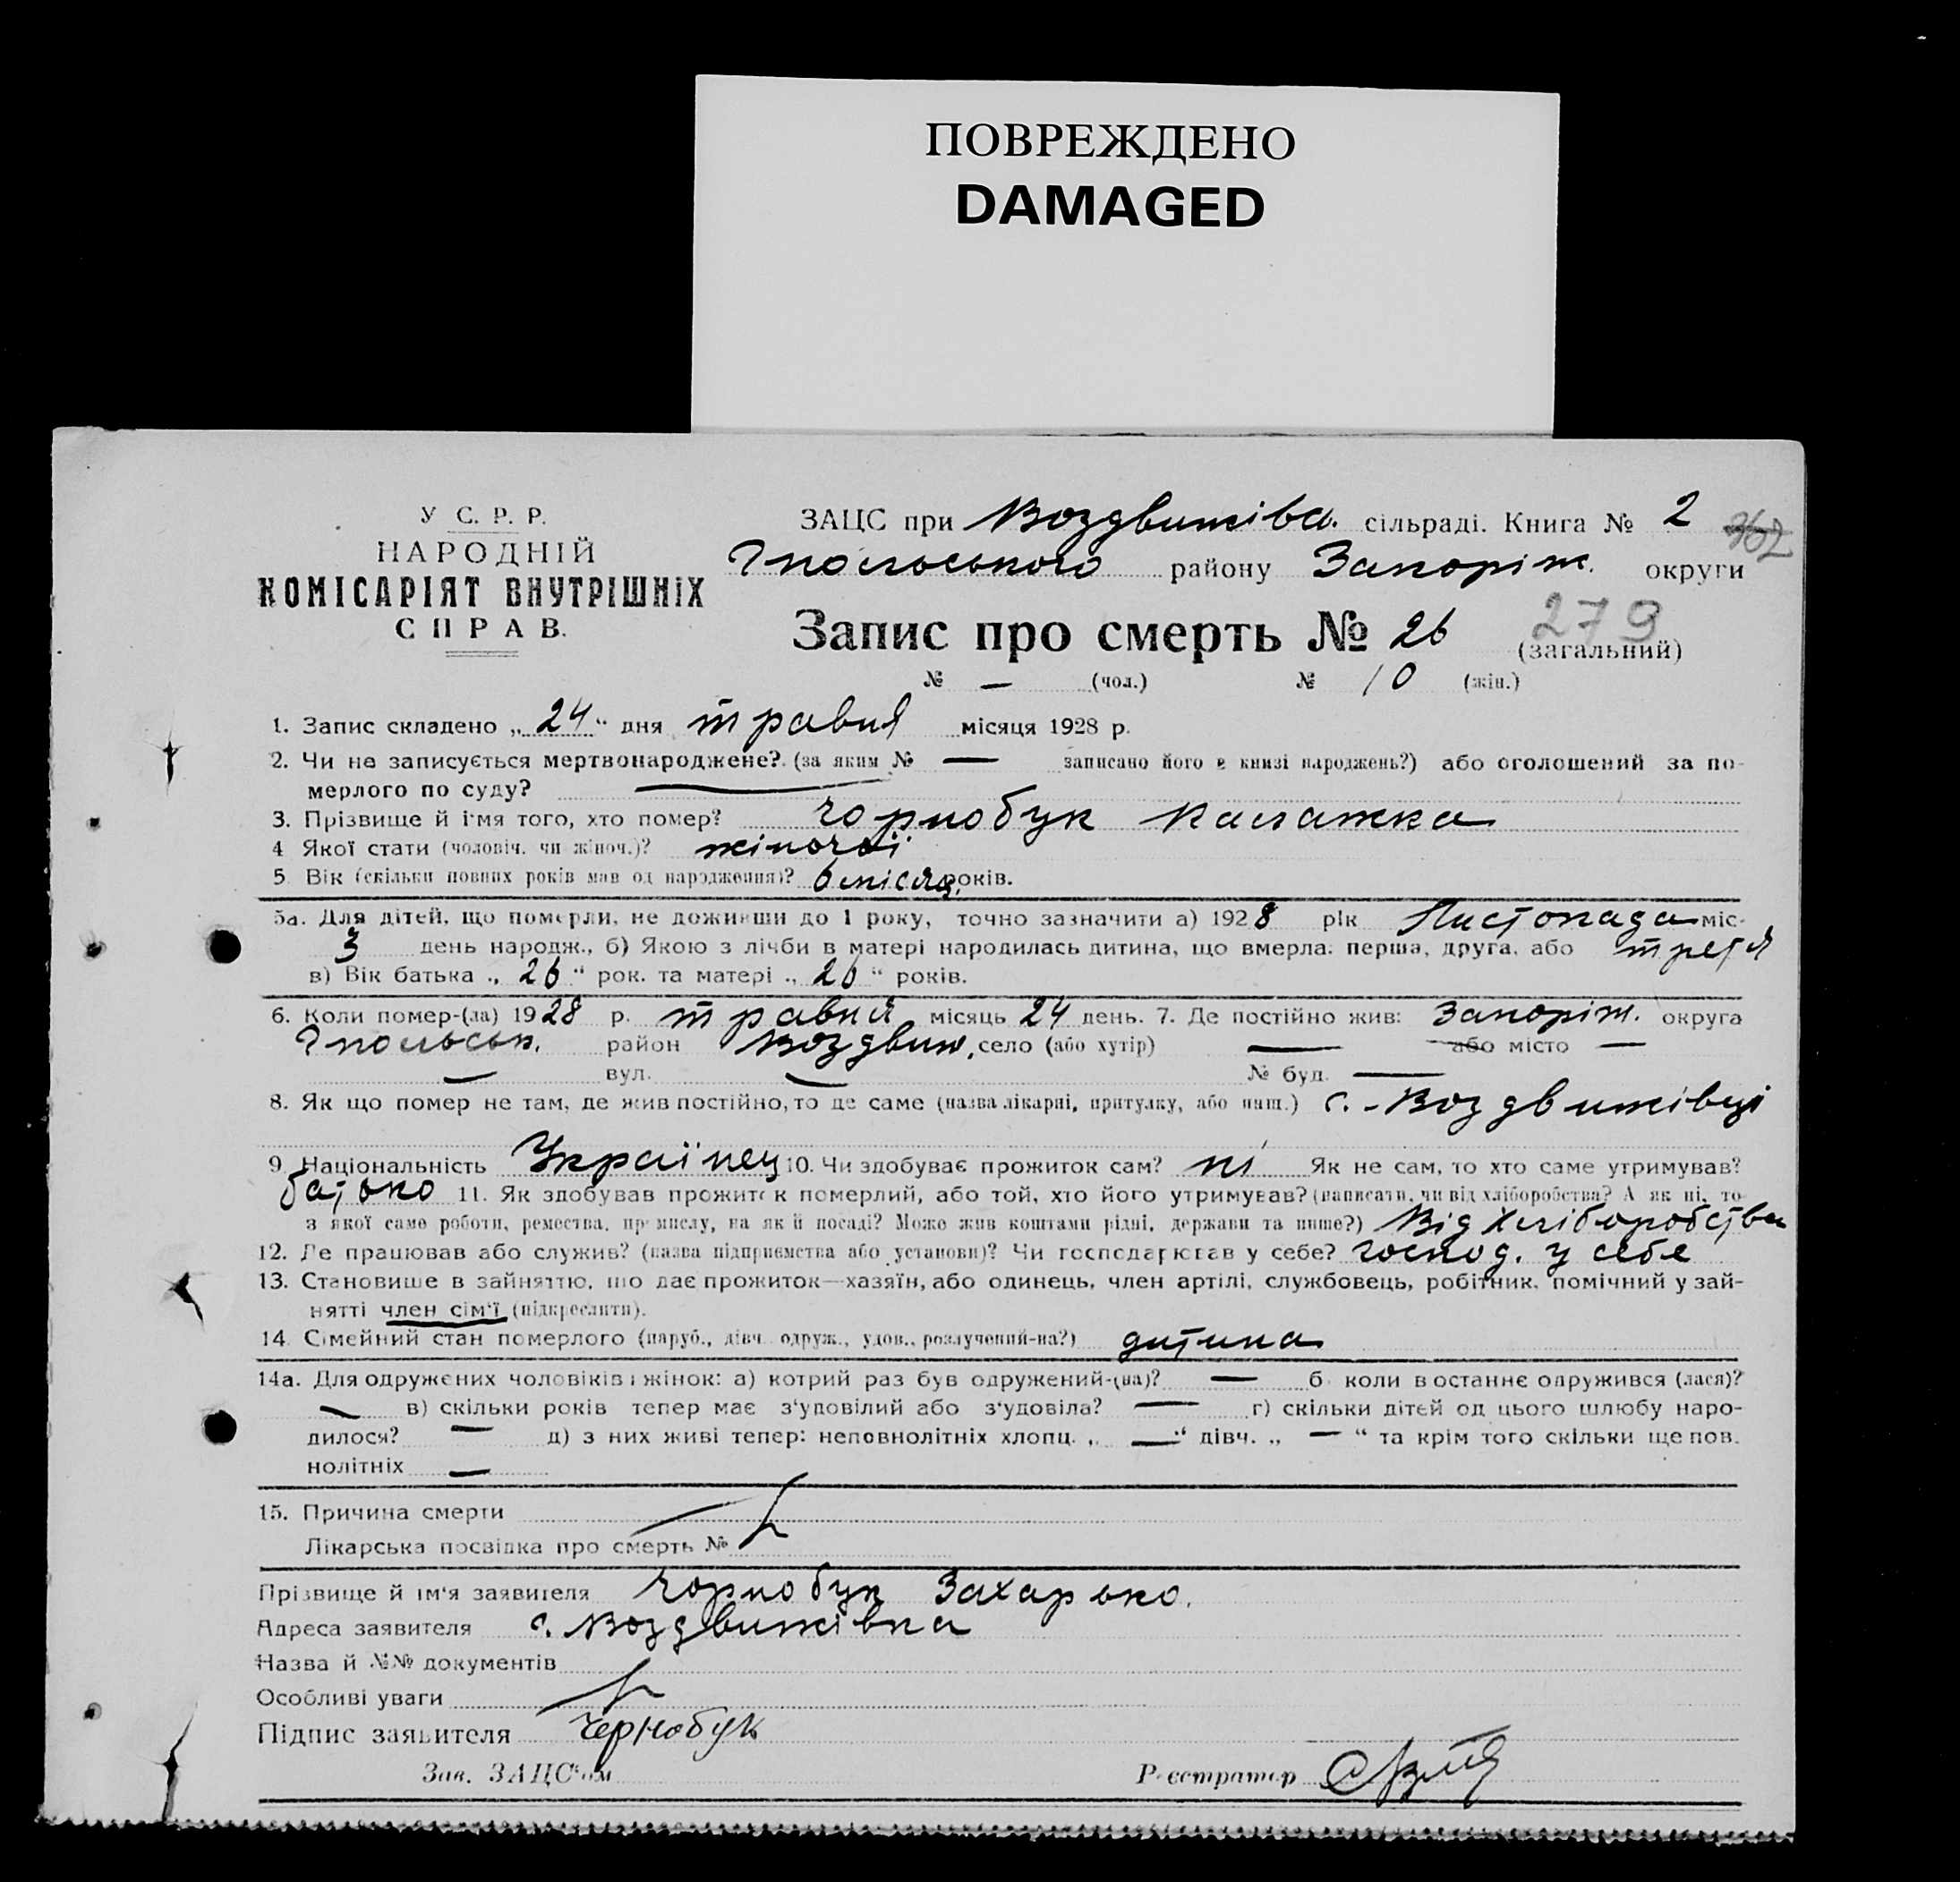 ПОВРЕЖДЕНО
DAMAGED
У С. Р. Р.
НАРОДНІЙ
КОМІСАРІЯТ ВНУТРІШНІХ
СПРАВ.
ЗАЦС при Воздвижівс. сільраді. Книга № 2 362
району Запоріж. округи
Запис про смерть № 26 279 (загальний)
№ — (чол.) № 10 (жін.)
1. Запис складено „ 24 “ дня травня місяця 1928 р.
2. Чи не записується мертвонароджене? (за яким № — записано його в книзі народжень?) або оголошений за по-
мерлого по суду? —
3. Прізвище й ім'я того, хто помер? Чорнобук
4 Якої стати (чоловіч. чи жіноч.)? жіночої
5. Вік (скільки повних років мав од народження)? 6 місяц. років.
5а. Для дітей, що померли, не доживши до 1 року, точно зазначити а) 1928 рік Листопада міс-
3 день народж., б) Якою з лічби в матері народилась дитина, що вмерла: перша, друга, або третя
в) Вік батька „ 26 “ рок. та матері „ 26 “ років.
6. Коли помер-(ла) 1928 р. травня місяць 24 день. 7. Де постійно жив: Запоріж. округа
район Воздвиж. село (або хутір) — або місто —
— вул. — № буд. —
8. Як що помер не там, де жив постійно, то де саме (назва лікарні, притулку, або инш.) с. - Воздвижівці
9. Національність Українец 10. Чи здобуває прожиток сам? ні Як не сам, то хто саме утримував?
батько 11. Як здобував прожиток померлий, або той, хто його утримував? (написати, чи від хліборобства? А як ні, то
з якої саме роботи, ремества, промислу, на якій посаді? Може жив коштами рідні, держави та инше?) Від Хліборобства
12. Де працював або служив? (назва підприємства або установи)? Чи господарював у себе? господ. у себе
13. Становище в зайняттю, що дає прожиток—хазяїн, або одинець, член артілі, службовець, робітник, помічний у зай-
нятті член сім'ї (підкреслити).
14. Сімейний стан померлого (паруб., дівч. одруж., удов., розлучений-на?) дитина
14а. Для одружених чоловіків і жінок: а) котрий раз був одружений-(на)? — б коли востаннє одружився (лася)?
— в) скільки років тепер має з'удовілий або з'удовіла? — г) скільки дітей од цього шлюбу наро-
дилося? — д) з них живі тепер: неповнолітніх хлопц. „ — “ дівч. „ — “ та крім того скільки ще пов.
нолітніх —
15. Причина смерти
Лікарська посвідка про смерть №
Прізвище й ім'я заявителя Чорнобук Захарько.
Адреса заявителя с. Воздвижівка
Назва й №№ документів
Особливі уваги
Підпис заявителя Чернобук
Зав. ЗАЦС'ом Реєстратор